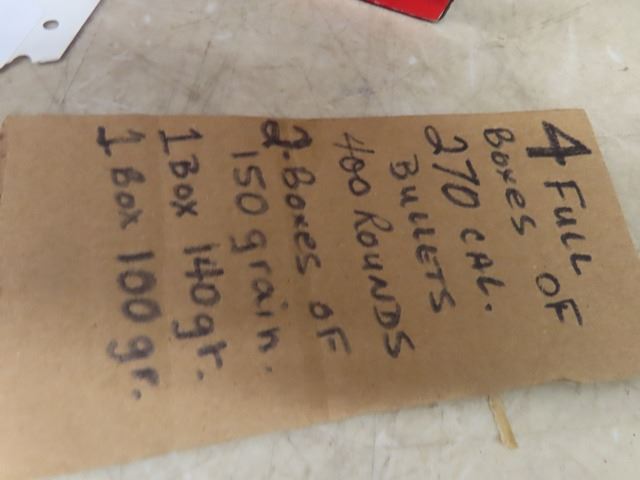 4 FULL
Boxes OF
270 CAL.
BULLETS
400 ROUNDS
2. Boxes OF
150 grain.
1 Box 140gr.
1 Box 100 gr.